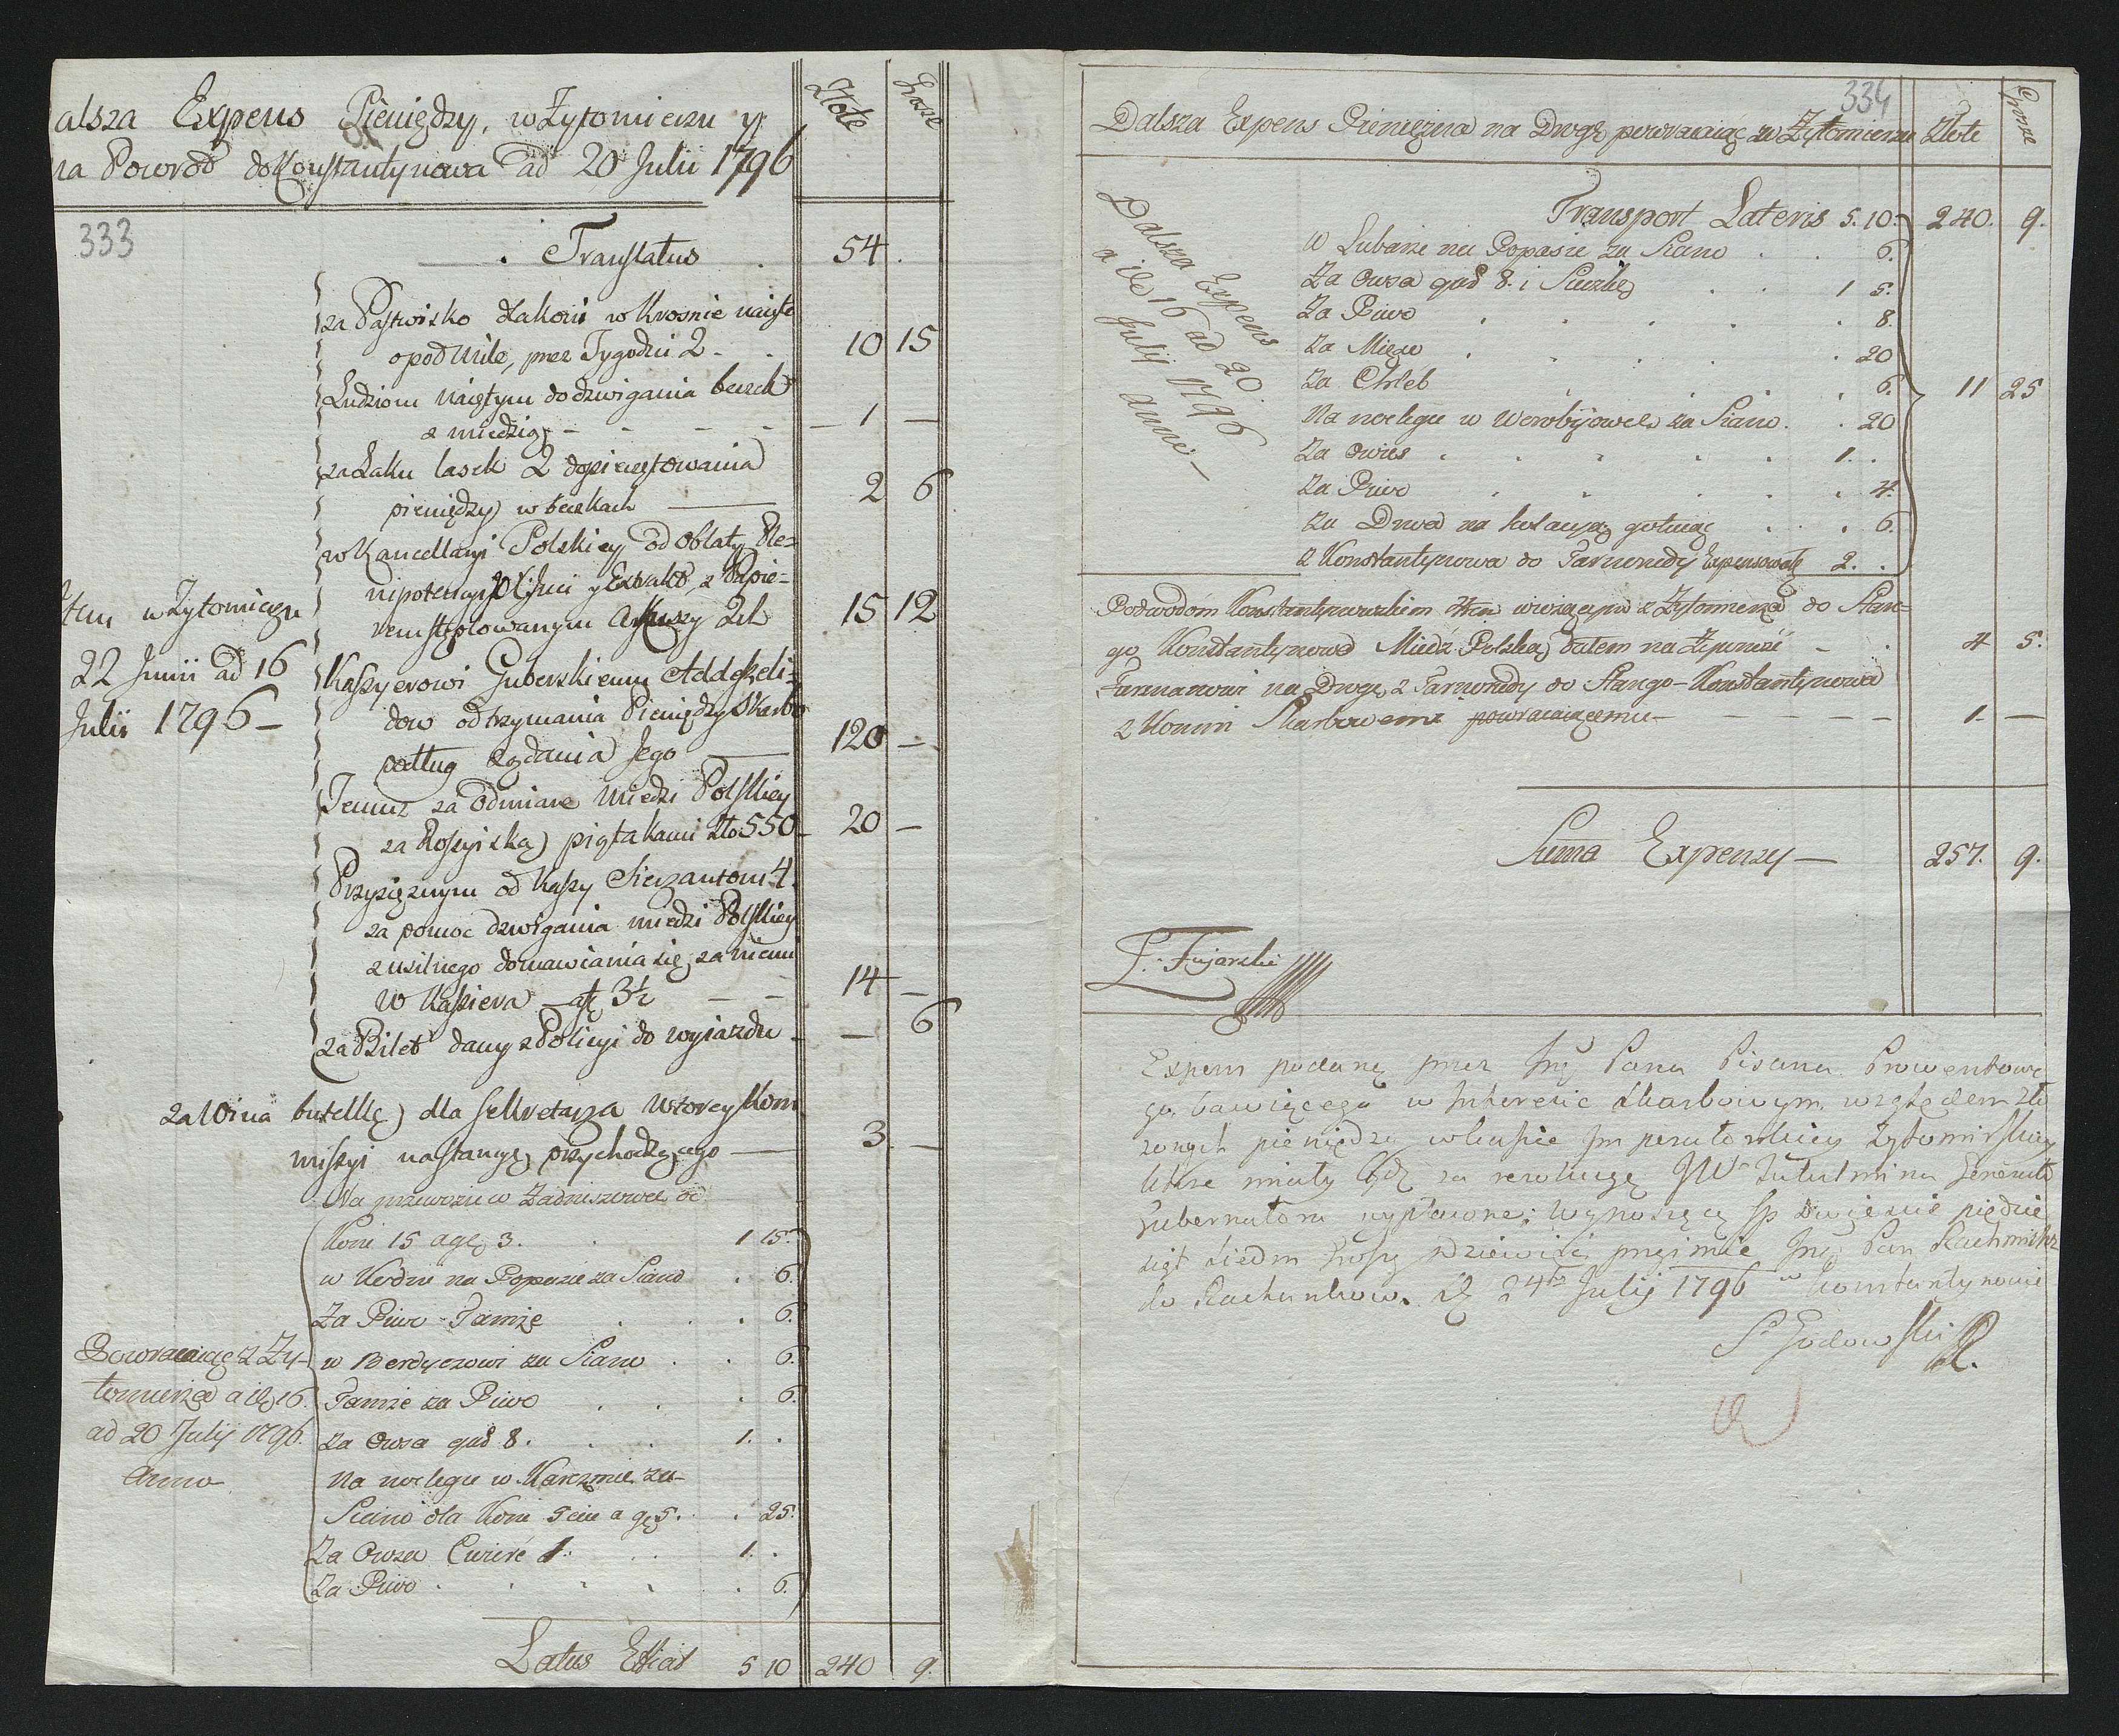 alsza Expens Pieniędzy, w Żytomierzu y
na Powrod do Konstantynowa ad 20 Julii 1796
Złote
Grosze
333
Translatus 54
za Pastwisko dla koni w Krosnie naięte
opod Mile, przez Tygodni 2 - 10 15
Ludziom naiętym do dzwigania beczek
z miedzią - - - - 1 -
za Laku lasek 2 do pieczętowania
pieniędzy w beczkach 2 6
w Kancellaryi Polskiey od oblaty Ple=
nipotencyi y Extrakt, z Papie=
rem stęplowanym Arkuszy 2ch 15 12
Item w Żytomierzu
22 Junii ad 16
Julii 1796 -
Kassyerowi Guberskiemu
dow odtrzymania Pieniędzy Skarbo
podług żądania Jego 120 -
Temuż za Odmianę Miedzi Polskiey
za Rossyiską piątakami Zło 550 - 20 -
Przysięznym od Kassy Sierzantom 4.
za pomoc dzwigania miedzi Polskiey
z usilnego domawiania się za niemi
W Kassiera - a 3½ - - 14 -
za Bilet dany z Policyi do wyiazdu - - 6
za Wina butelkę dla Sekretarza Wtorey Kom
missyi na stancyę przychodzącego - 3 -
Na przewozie w Zadniszowce od
Koni 15 a gę 3. 1 15.
w Kordnie na Popasie za Siano . 6.
Za Piwo Tamże . . . 6.
Powracaiąc z Ży-
tomierza a die 16
ad 20 Julij 1796.
Anno
w Berdyczowi za Siano . . 6.
Tamże za Piwo . . . 6.
za Owsa gad 8. . . 1. .
Na noclegu w Karczmie za
Siano dla Koni 5ciu a gę 5. . 25.
Za Owsa Cwierć 1. . . 1. .
Za Piwo . . . . . 6.
Latus Efficit 5 10 240 9.
334
Dalsza Expens Pieniężna na Drogę powracaiąc z Żytomierza Złote Grosze
Transport Lateris 5. 10. 240. 9.
Dalsza Expens
a die 16 ad 20
Julij 1796
Anni -
w Lubarze na Popasie za Siano . . 6.
Za Owsa gad 8. i Sieczkę . . 1 5.
Za Piwo . . . . . 8.
Za Mięso . . . . . 20
Za Chleb . . . . 6. 11 25
Na noclegu w Werobijowce za Siano . . 20
Za Owies . . . . . 1. .
Za Piwo . . . . . 4.
Za Drwa na kolacyą gotuiąc . . . 6.
z Konstantynowa do Tarnorudy Expensowałę 2. .
Podwodom Konstantynowskim wiozącym z Żytomierza do Stare=
go Konstantynowa Miedź Polską dałem na Żywność - . 4 5.
Furmanowi na Drogę z Tarnorudy do Starego-Konstantynowa
z Konmi Skarbowemi powracaiącemu - - - - - 1. -
Suma Expensy - 257. 9.
Fujarski
Expens podaną przez Jmę Pana Pisarza Prowentowe
go bawiącego w Interesie Skarbowym względem zło
żonych pieniędzy w kassie Imperatorskiey Żytomirskiey
które miały być za rezolucyę JW Tutulmina Generał
Gubernatora wypłacone: wynoszącą fp Dwieście piędzie
siąt siedm groszy dziewięć przyimie Jmę Pan Rachmistrz
do Rachunkow. D 24ta Julij 1796 w Konstantynowie